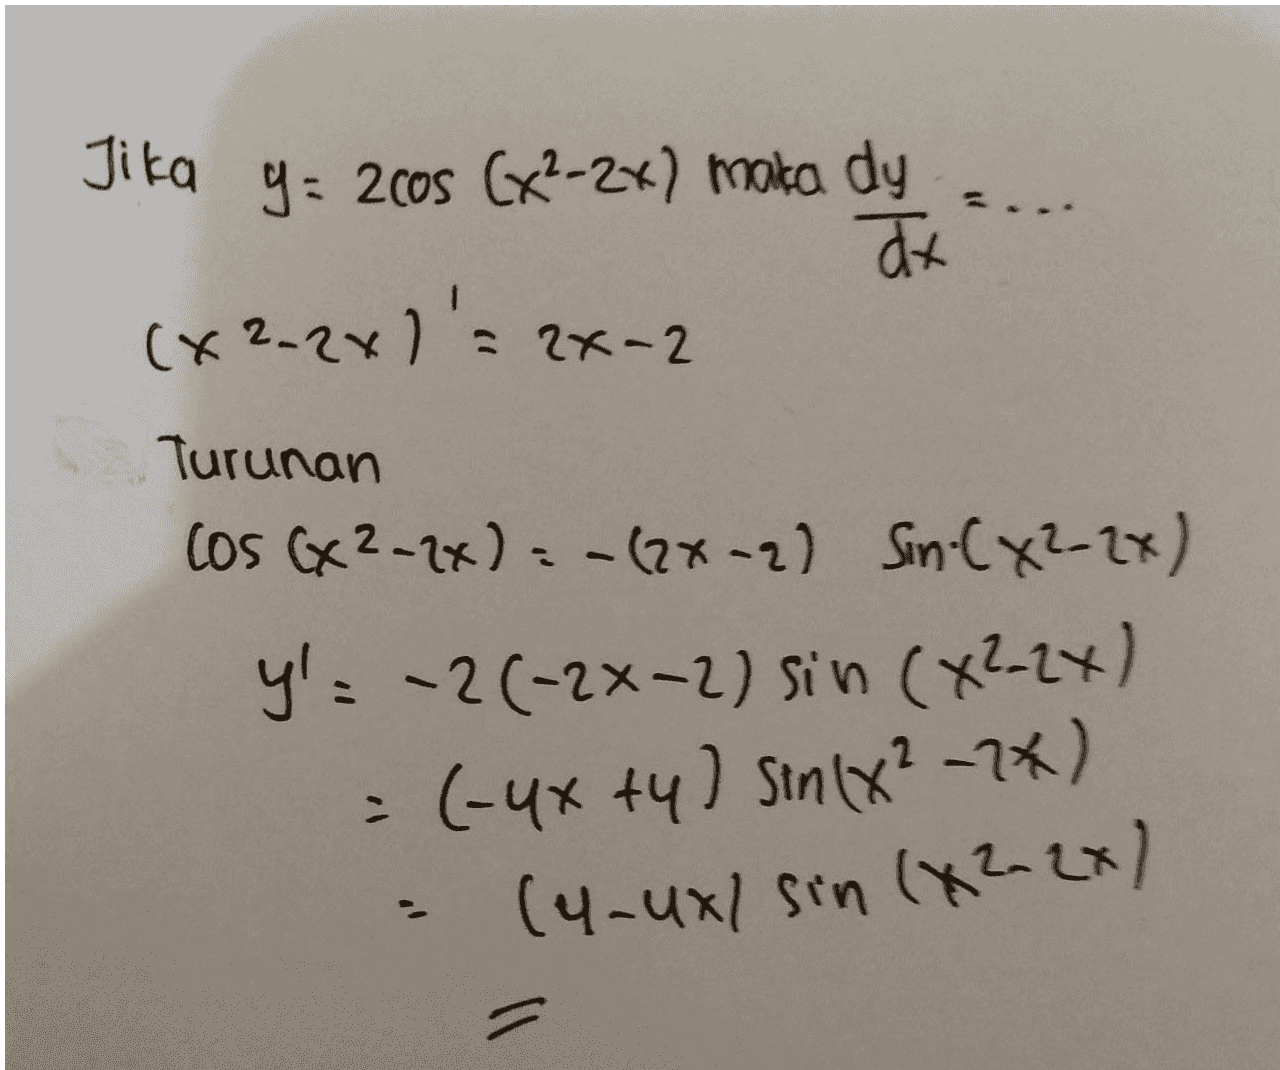 Jika y = 2cos (x²-2x) maka dy/dx = ....
(x²-2x)' = 2x-2
Turunan
cos (x²-2x) = -(2x-2) sin (x²-2x)
y' = -2(-2x-2) sin (x²-2x)
= (-4x+4) sin(x²-2x)
= (4-4x) sin (x²-2x)
=